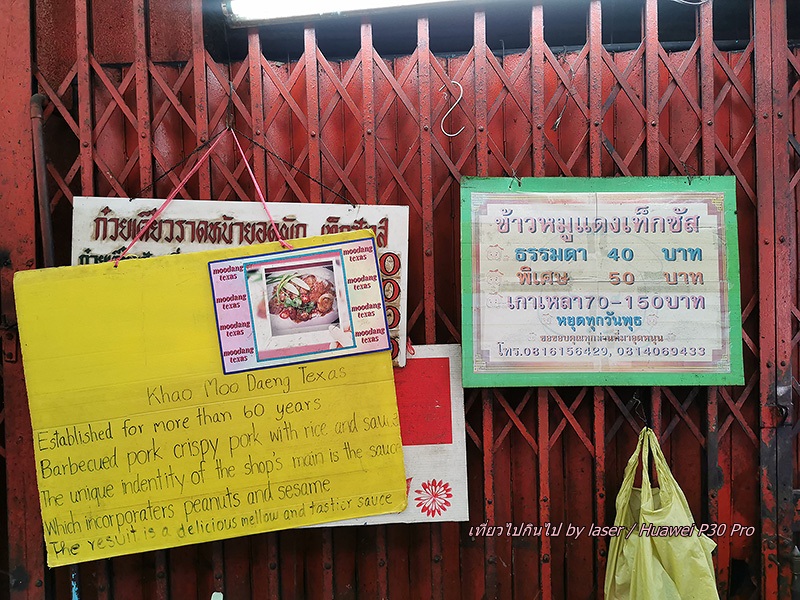 ก๋วยเตี๋ยวราดหน้ายอดผัก เท็กซัส
moodang texas
moodang texas
moodang texas
moodang texas
moodang texas
moodang texas
moodang texas
moodang texas
Khao Moo Daeng Texas
Established for more than 60 years
Barbecued pork crispy pork with rice and sauce
The unique indentity of the shop's main is the sauce
Which incorporaters peanuts and sesame
The result is a delicious mellow and tastier sauce
ข้าวหมูแดงเท็กซัส
ธรรมดา 40 บาท
พิเศษ 50 บาท
เกาเหลา 70-150 บาท
หยุดทุกวันพุธ
ขอขอบคุณทุกท่านที่มาอุดหนุน
โทร.0816156429, 0814069433
เที่ยวไปกินไป by laser / Huawei P30 Pro